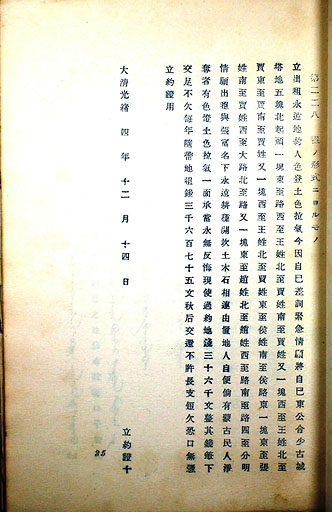 第二二八 號ノ形式ニヨルモノ
立出租永遠地約人色登土色拉氣今因自己差詞緊急情願將自己東公合少古城
塔地五塊北起頭一塊東至路西至王姓北至賈姓南至賈姓又一塊西至王姓北至
賈東至賈南至賈姓又一塊西至王姓北至賈姓東至侯姓南至侯路東一塊東至張
姓南至賈姓西至大路北至路又一塊東至趙姓北至趙姓西至路南至路四至分明
情願出租與張富名下永遠耕種開汝土木石相連由置地人自便倘有蒙古民人淨
奪者有色登土色拉氣一面承當永無反悔現使過約地錢三十六千文整其錢筆下
交足不欠每年隨帶地租錢三千六百七十五文秋后交還不許長支短欠恐口無憑
立約證用
大淸光緒 四年 十二月 十四日
立約證十
35